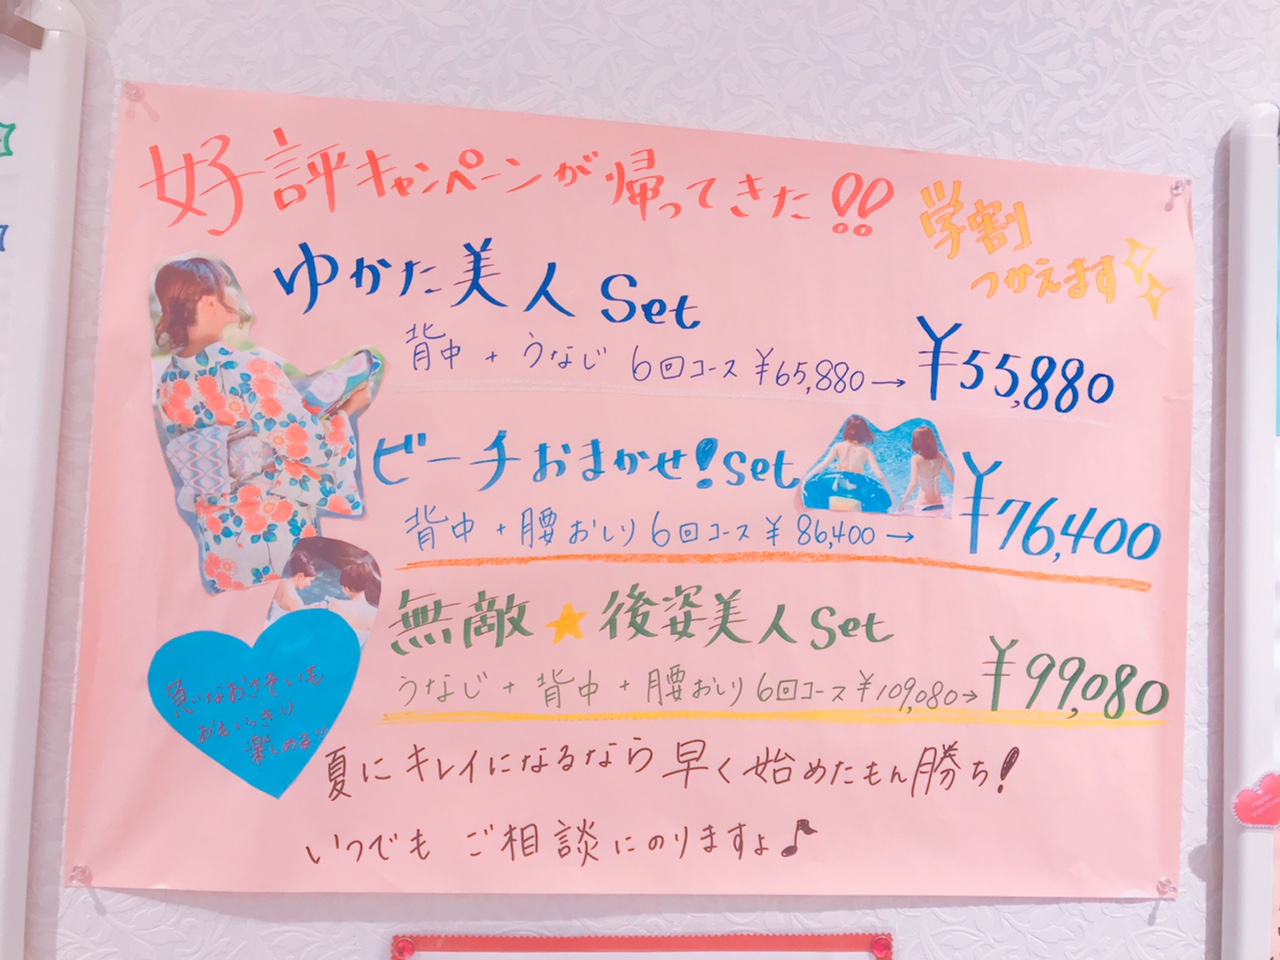 好評キャンペーンが帰ってきた!!
学割
つかえます
ゆかた美人 Set
背中 + うなじ 6回コース ¥65,880→ ¥55,880
ビーチおまかせ!Set
背中 + 腰おしり 6回コース ¥86,400→ ¥76,400
無敵★後姿美人Set
うなじ + 背中 + 腰おしり 6回コース ¥109,080→ ¥99,080
急なおさそいも
おもいっきり
楽しめる♡
夏にキレイになるなら早く始めたもん勝ち!
いつでも ご相談にのりますよ♪